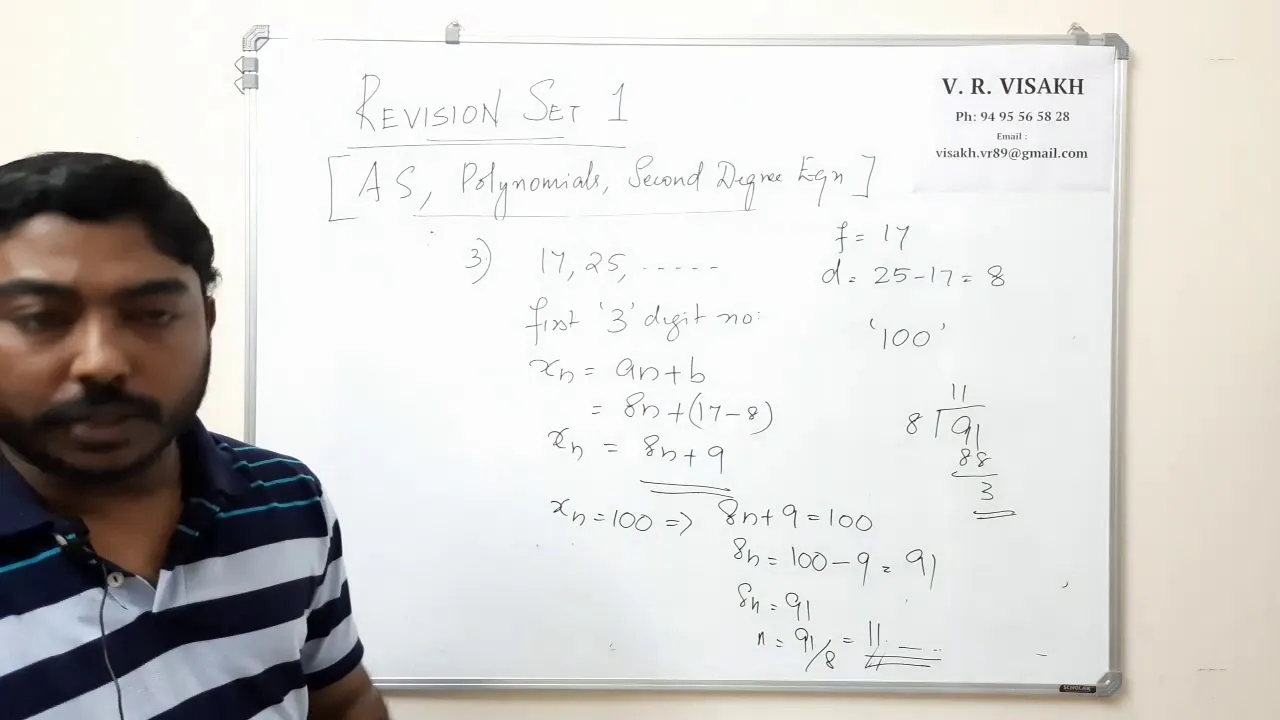 REVISION SET 1
[AS, Polynomials, Second Degree Eqn]
V. R. VISAKH
Ph: 94 95 56 58 28
Email :
visakh.vr89@gmail.com
3) 17, 25, -----
first '3' digit no:
xn = an+b
= 8n+(17-8)
xn = 8n+9
xn=100 => 8n+9=100
8n=100-9=91
8n=91
n=91/8=11.__..
f= 17
d= 25-17=8
'100'
11
8 91
88
3
SCHOLAR